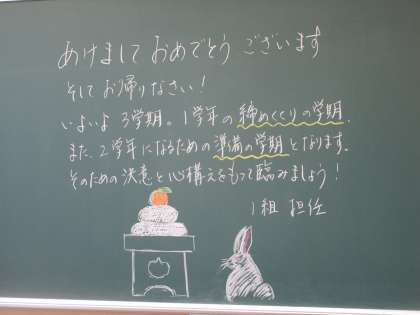 あけまして おめでとう ございます
そしてお帰りなさい！
いよいよ 3学期。1学年の締めくくりの学期、
また、2学年になるための準備の学期となります。
そのための決意と心構えをもって臨みましょう！
1組 担任